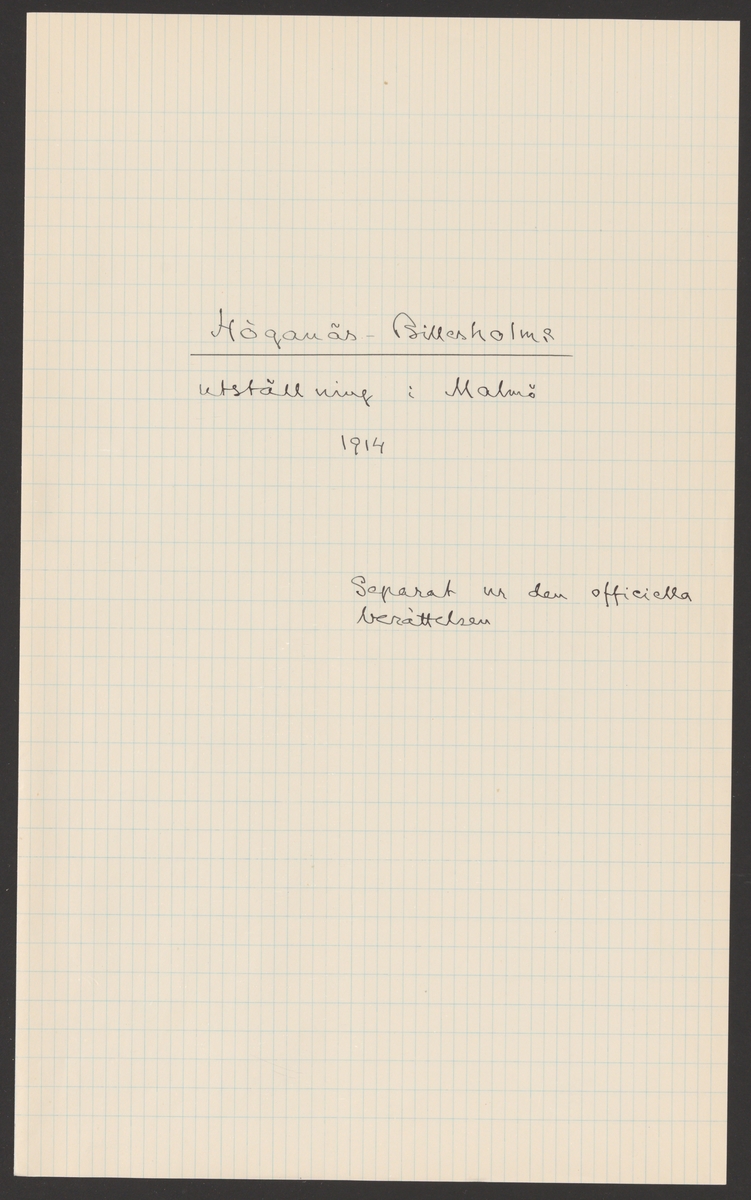 Höganäs - Billesholms
utställning i Malmö
1914
Separat ur den officiella
berättelsen